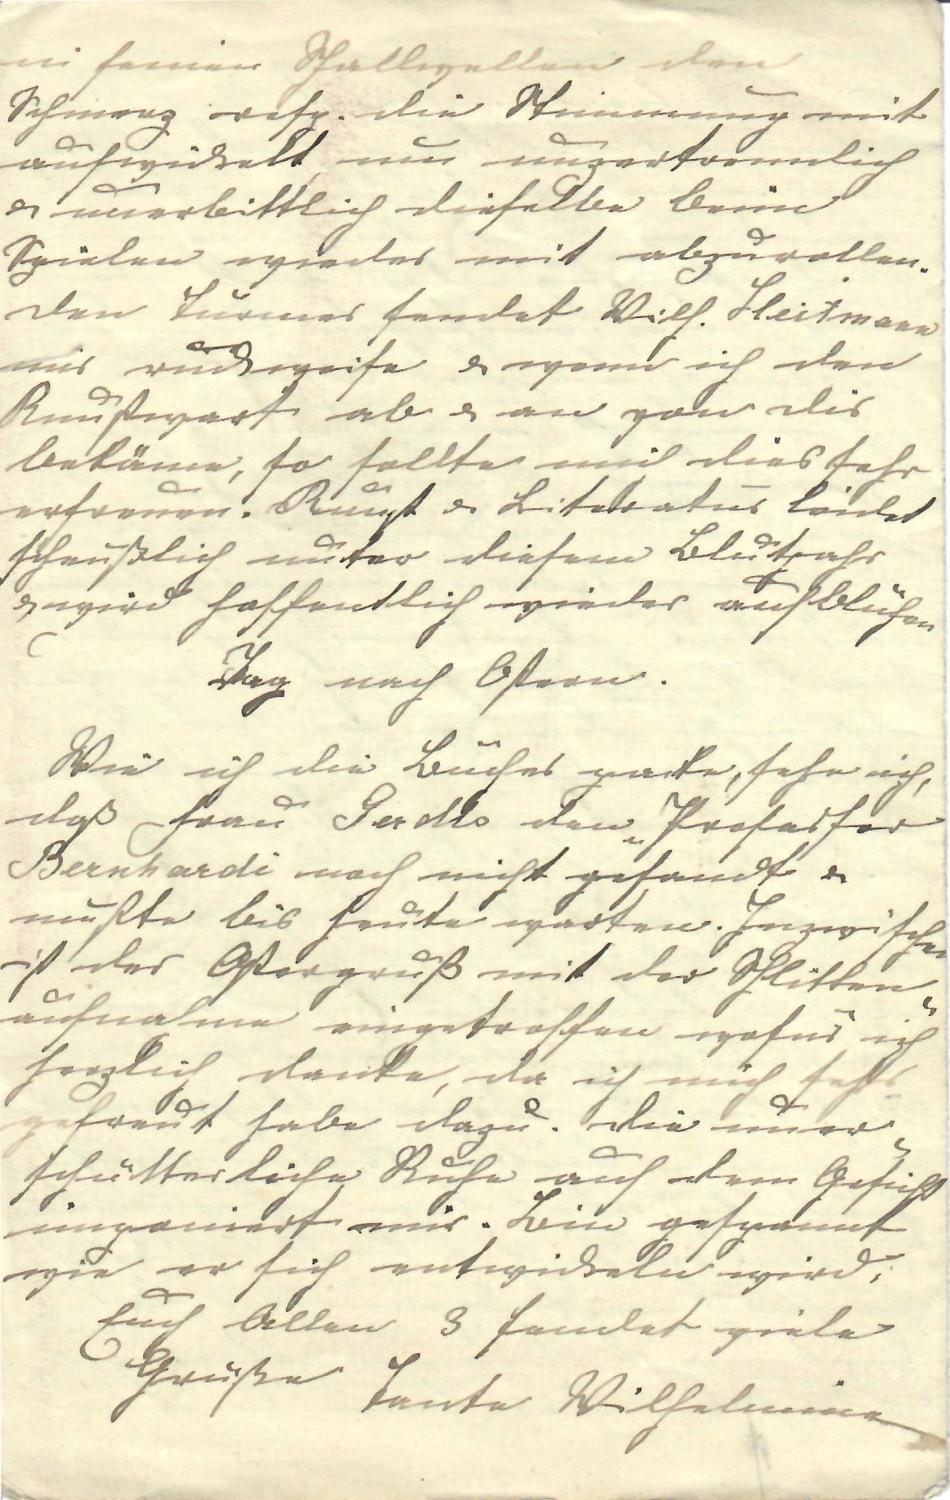 in seinen Schallwellen den
Schmerz resp. die Stimmung mit
aufwickelt um unzertrennlich
& unerbittlich dieselbe beim
Spielen wieder mit abzurollen.
Den Türmer sendet Wilh. Heitmann
mir ruckweise & wenn ich den
Kunstwart ab & an von dir
bekäme, so sollte mich dies sehr
erfreuen. Kunst & Literatur leidet
scheußlich unter diesem Blutjahr
& wird hoffentlich wieder aufblühen
Tag nach Ostern.
Wie ich die Bücher packe, sehe ich,
daß Frau Gerdts den „Professor
Bernhardi noch nicht gesandt &
mußte bis heute warten. Inzwischen
ist der Ostergruß mit der Schlitten„
aufnahme eingetroffen wofür ich
herzlich danke, da ich mich sehr
gefreut habe dazu. Die uner„
schütterliche Ruhe auf dem Gesicht
imponiert mir. Bin gespannt
wie er sich entwickeln wird;
Euch Allen 3 sendet viele
Grüße Tante Wilhelmine